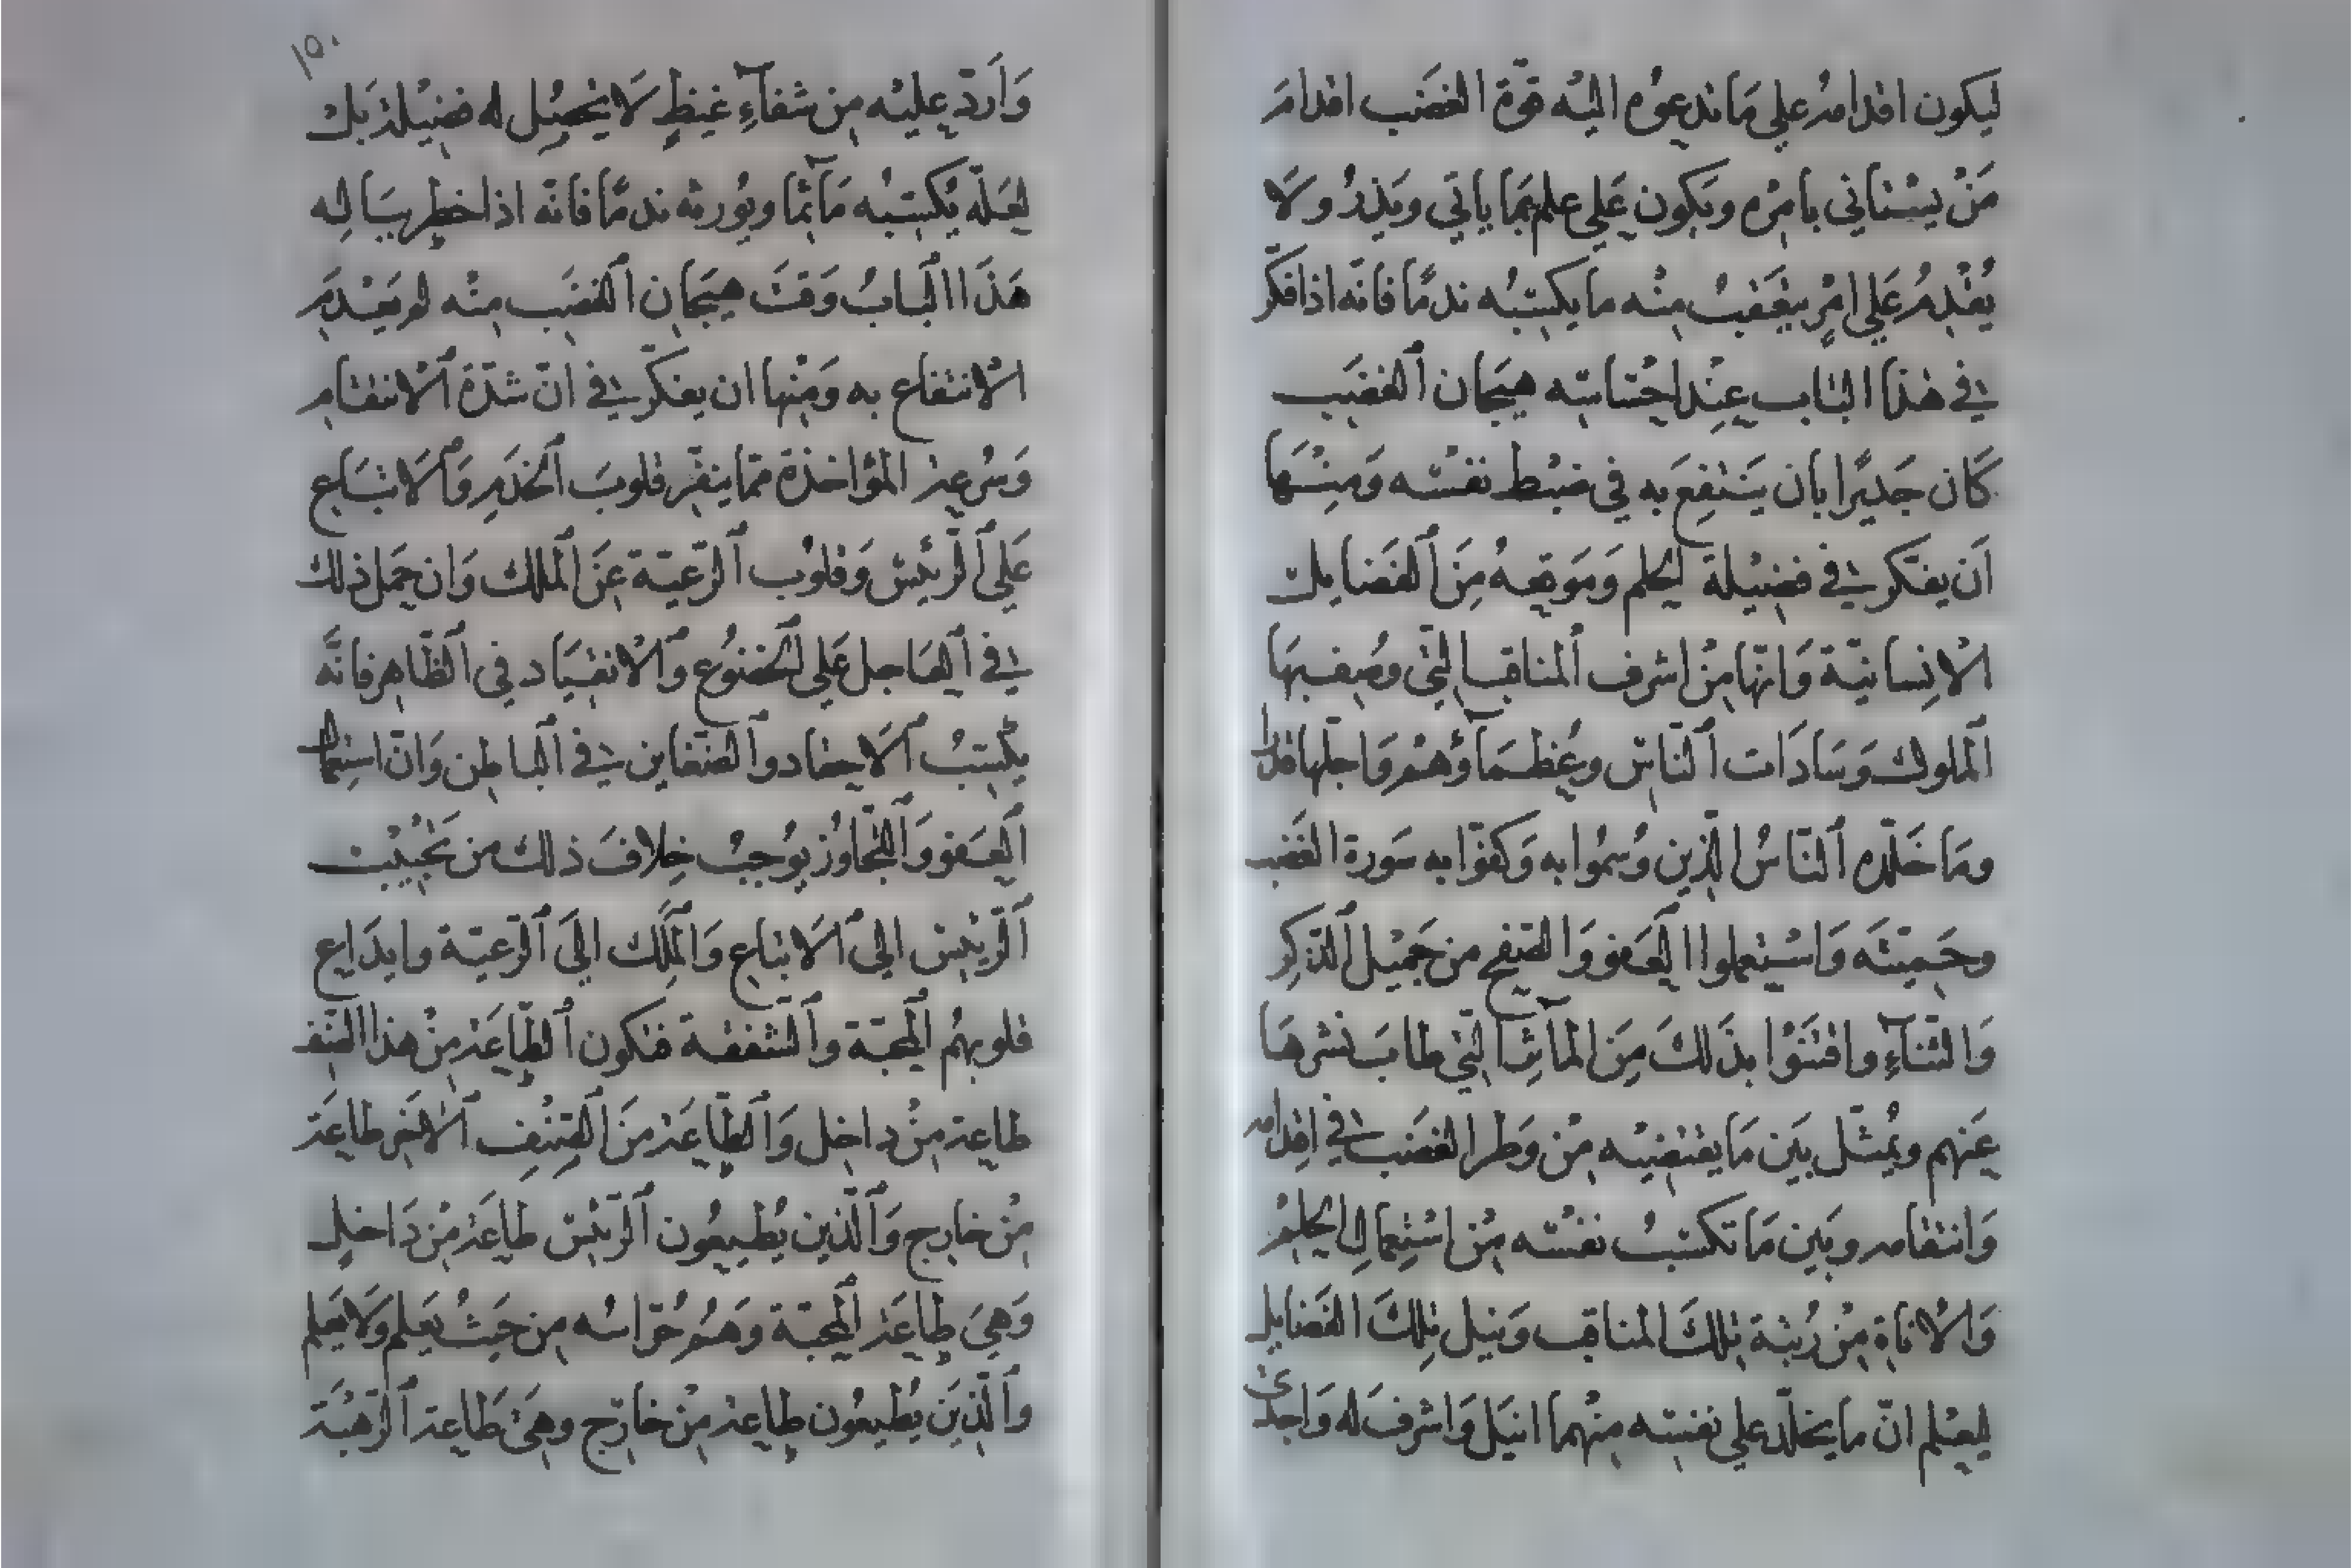 ليكون اقدامه علي ما تدعوه اليه قوة الغضب اقدام
من يستاني بامره ويكون علي علم بما ياتي ويذر ولا
يقدم علي امر يتعقب منه ما يكتسبه ندما فانه اذا فكر
في هذا الباب عند احساسه هيجان الغضب
كان جديرا بان ينتفع به في ضبط نفسه ومنها
ان يفكر في فضيلة الحلم وموقعه من الفضايل
الانسانية وانها من اشرف المناقب التي وصف بها
الملوك وسادات الناس وعظمآؤهم واجلها قدرا
وما خلده الناس الذين وسموا به وكفوا به سورة الغضب
وحميته واستعملوا العفو والصفح من جميل الذكر
والثنآء واقتنوا بذلك من المآثر التي طاب نشرها
عنهم ويمثل بين ما يقتضيه من وطر الغضب في اقدامه
وانتقامه وبين ما تكسب نفسه من استعمال الحلم
والاناة من رتبة تلك المناقب ونيل تلك الفضايل
ليعلم ان ما يخلد علي نفسه منهما انبل واشرف له واجدى
وارد عليه من شفآء غيظ لا يحصل له فضيلة بل
لعله يكسبه مآثما ويورثه ندما فانه اذا خطر بباله
هذا الباب وقت هيجان الغضب منه لم يعدم
الانتفاع به ومنها ان يفكر في ان شدة الانتقام
وسرعة المؤاخذة مما ينفر قلوب الخدم والاتباع
علي الرئيس وقلوب الرعية عن الملك وان حمل ذلك
في العاجل علي الخضوع والانقياد في الظاهر فانه
يكسب الاحقاد والضغاين في الباطن وان استعمال
العفو والتجاوز يوجب خلاف ذلك من تحبيب
الرئيس الي الاتباع والملك الي الرعية وايداع
قلوبهم المحبة والشفقة فتكون الطاعة من هذا الصنف
طاعة من داخل والطاعة من الصنف الاخر طاعة
من خارج والذين يطيعون الرئيس طاعة من داخل
وهي طاعة المحبة وهم حراسه من حيث يعلم ولا يعلم
والذين يطيعون طاعة من خارج وهي طاعة الرهبة
١٥٠